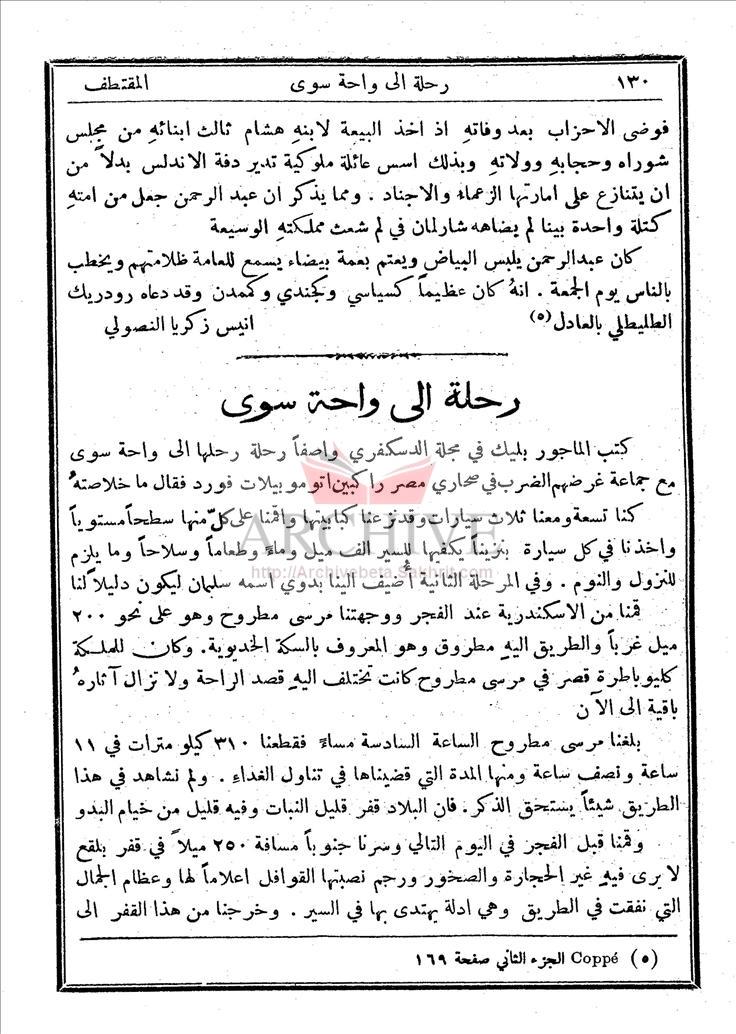 ١٣٠ رحلة الى واحة سوى المقتطف
فوضى الاحزاب بعد وفاتهِ اذ اخذ البيعة لابنهِ هشام ثالث ابنائهِ من مجلس
شوراه وحجابهِ وولاتهِ وبذلك اسس عائلة ملوكية تدير دفة الاندلس بدلاً من
ان يتنازع على امارتها الزعماء والاجناد . ومما يذكر ان عبد الرحمن جعل من امتهِ
كتلة واحدة بينا لم يضاهه شارلمان في لم شعث مملكتهِ الوسيعة
كان عبدالرحمن يلبس البياض ويعتم بعمة بيضاء يسمع للعامة ظلامتهم ويخطب
بالناس يوم الجمعة . انهُ كان عظيماً كسياسي وكجندي وكممدن وقد دعاه رودريك
الطليطلي بالعادل(٥) انيس زكريا النصولي
رحلة الى واحة سوى
كتب الماجور بليك في مجلة الدسكفري واصفاً رحلة رحلها الى واحة سوى
مع جماعة غرضهم الضرب في صحاري مصر راكبين اتوموبيلات فورد فقال ما خلاصتهُ
كنا تسعة ومعنا ثلاث سيارات وقد نزعنا كبابيتها واقمنا على كلّ منها سطحاً مستوياً
واخذنا في كل سيارة بنزيناً يكفيها للسير الف ميل وماءً وطعاماً وسلاحاً وما يلزم
للنزول والنوم . وفي المرحلة الثانية أُضيف الينا بدوي اسمه سليمان ليكون دليلاً لنا
قمنا من الاسكندرية عند الفجر ووجهتنا مرسى مطروح وهو على نحو ٢٠٠
ميل غرباً والطريق اليهِ مطروق وهو المعروف بالسكة الخديوية. وكان للملكة
كليوباطرة قصر في مرسى مطروح كانت تختلف اليهِ قصد الراحة ولا تزال آثارهُ
باقية الى الآن
بلغنا مرسى مطروح الساعة السادسة مساءً فقطعنا ٣١٠ كيلو مترات في ١١
ساعة ونصف ساعة ومنها المدة التي قضيناها في تناول الغداءِ . ولم نشاهد في هذا
الطريق شيئاً يستحق الذكر. فان البلاد قفر قليل النبات وفيه قليل من خيام البدو
وقمنا قبل الفجر في اليوم التالي وسرنا جنوباً مسافة ٢٥٠ ميلاً في قفر بلقع
لا يرى فيهِ غير الحجارة والصخور ورجم نصبتها القوافل اعلاماً لها وعظام الجمال
التي نفقت في الطريق وهي ادلة يهتدى بها في السير . وخرجنا من هذا القفر الى
(٥) Coppé الجزء الثاني صفحة ١٦٩
ARCHIVE
http://Archivebeta.Sakhrit.com